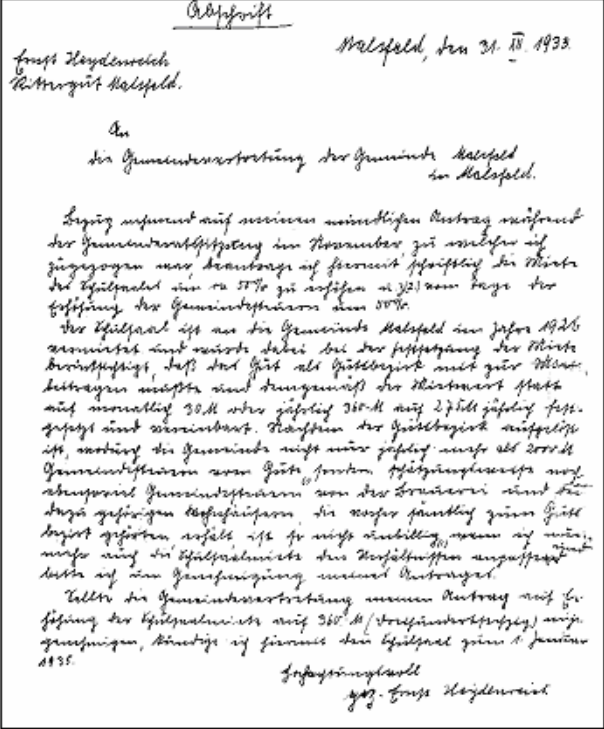 Abschrift
Malsfeld, den 31. XII. 1933.
Ernst Heydenreich
Rittergut Malsfeld.
An
die Gemeindevertretung der Gemeinde Malsfeld
in Malsfeld.
Bezug nehmend auf meinen mündlichen Antrag während
der Gemeinderatssitzung im November zu welcher ich
zugezogen war, beantrage ich hiermit schriftlich die Miete
des Schulsaales um ca 50% zu erhöhen u. zw. vom Tage der
Erhöhung der Gemeindesteuern um 50%.
Der Schulsaal ist an die Gemeinde Malsfeld im Jahre 1926
vermietet und wurde dabei bei der Festsetzung der Miete
berücksichtigt, daß das Gut als Gutsbezirk mit zur
beitragen mußte und demgemäß der Mietwert statt
auf monatlich 30 M oder jährlich 360 M auf 275 M jährlich fest-
gesetzt und vereinbart. Nachdem der Gutsbezirk aufgelöst
ist, wodurch die Gemeinde nicht nur jährlich mehr als 2000 M
Gemeindesteuern vom Gute, sondern schätzungsweise noch
ebensoviel Gemeindesteuern von der Brauerei und
dazu gehörigen Wohnhäusern, die vorher sämtlich zum Guts
bezirk gehörten, erhält ist es nicht unbillig, wenn ich nun-
mehr auch die Schulsaalmiete den Verhältnissen anpasse und
bitte ich um Genehmigung meines Antrages.
Sollte die Gemeindevertretung meinen Antrag auf Er-
höhung der Schulsaalmiete auf 360 M (dreihundertsechzig) nicht
genehmigen, kündige ich hiermit den Schulsaal zum 1. Januar
1935.
Hochachtungsvoll
gez. Ernst Heydenreich